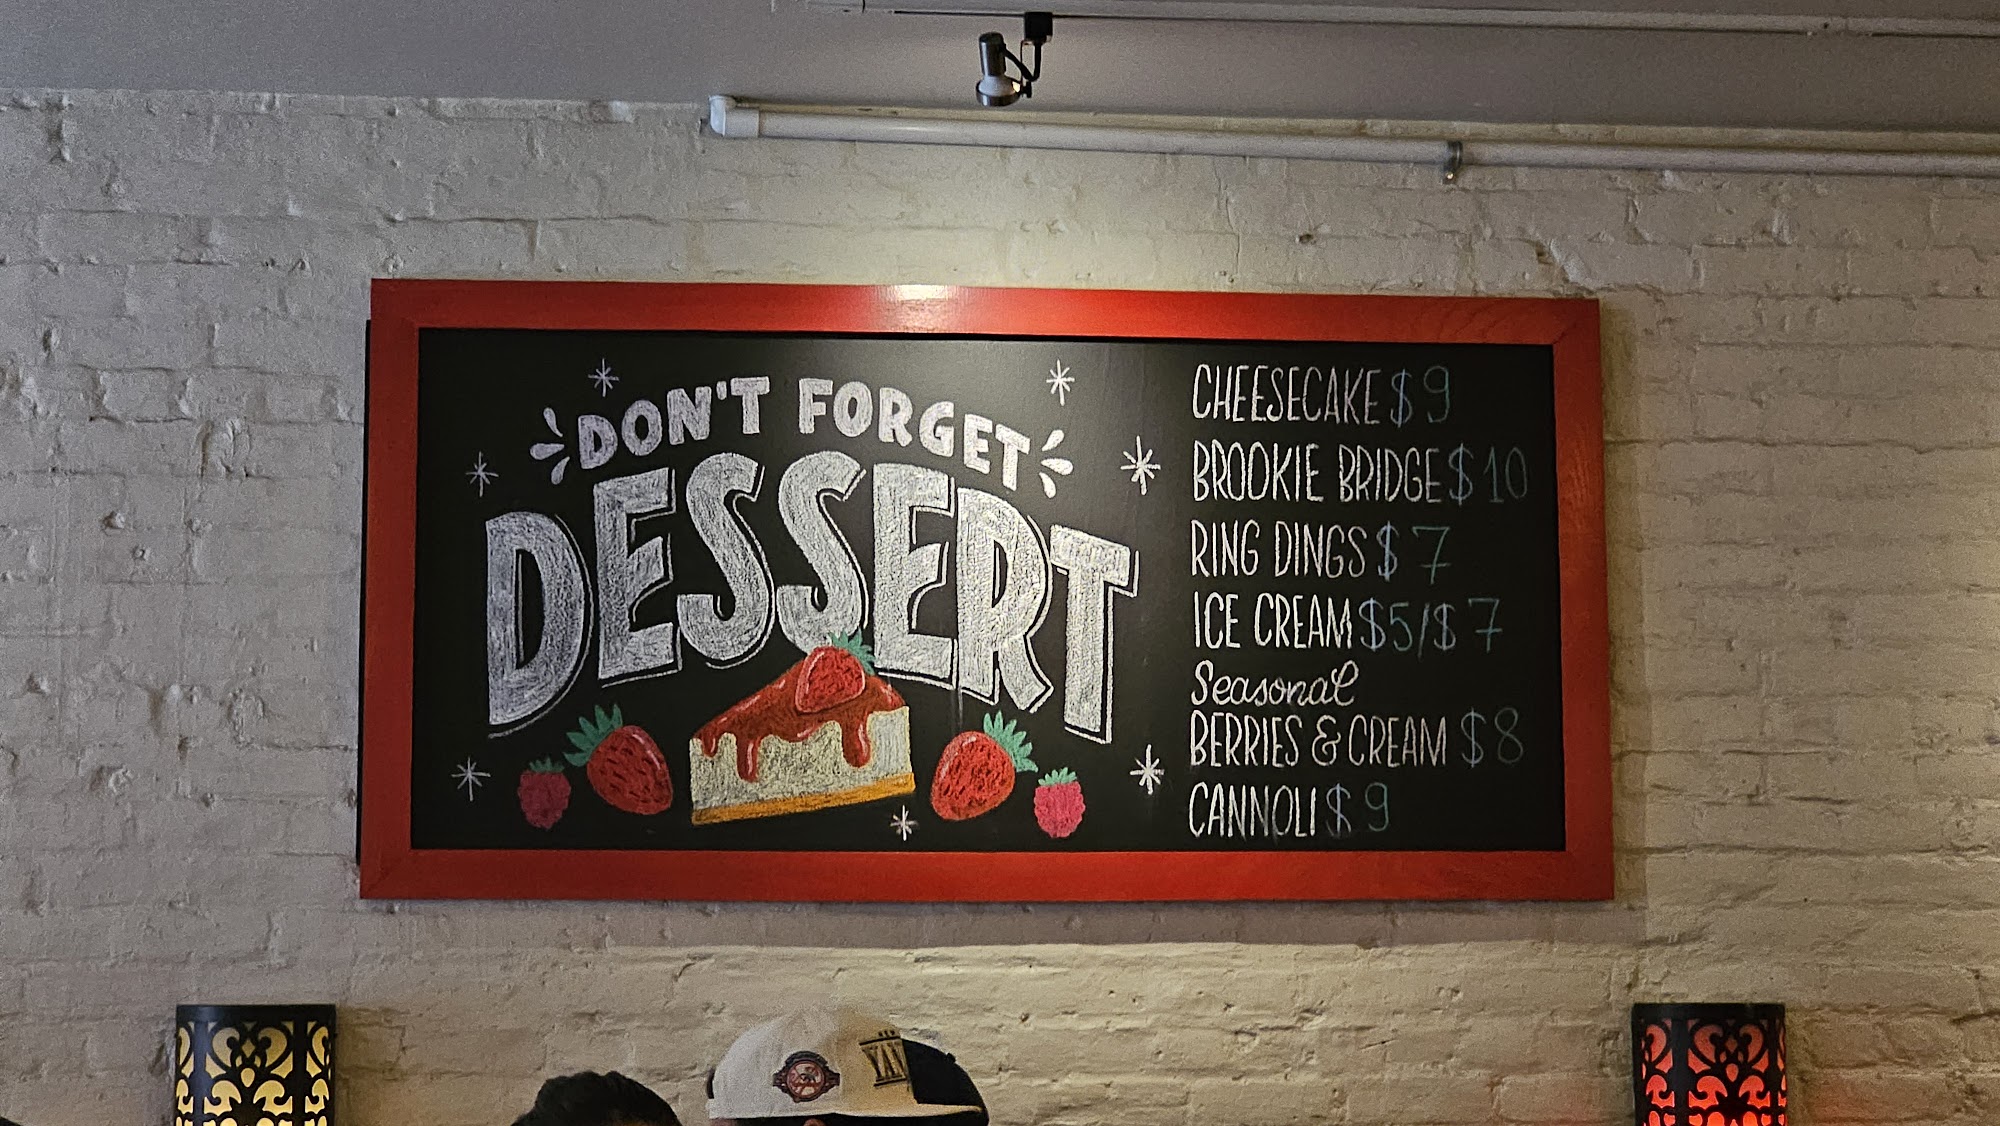 DON'T FORGET
DESSERT
CHEESECAKE $9
BROOKIE BRIDGE $10
RING DINGS $7
ICE CREAM $5/$7
Seasonal
BERRIES & CREAM $8
CANNOLI $9
NEW
YAN